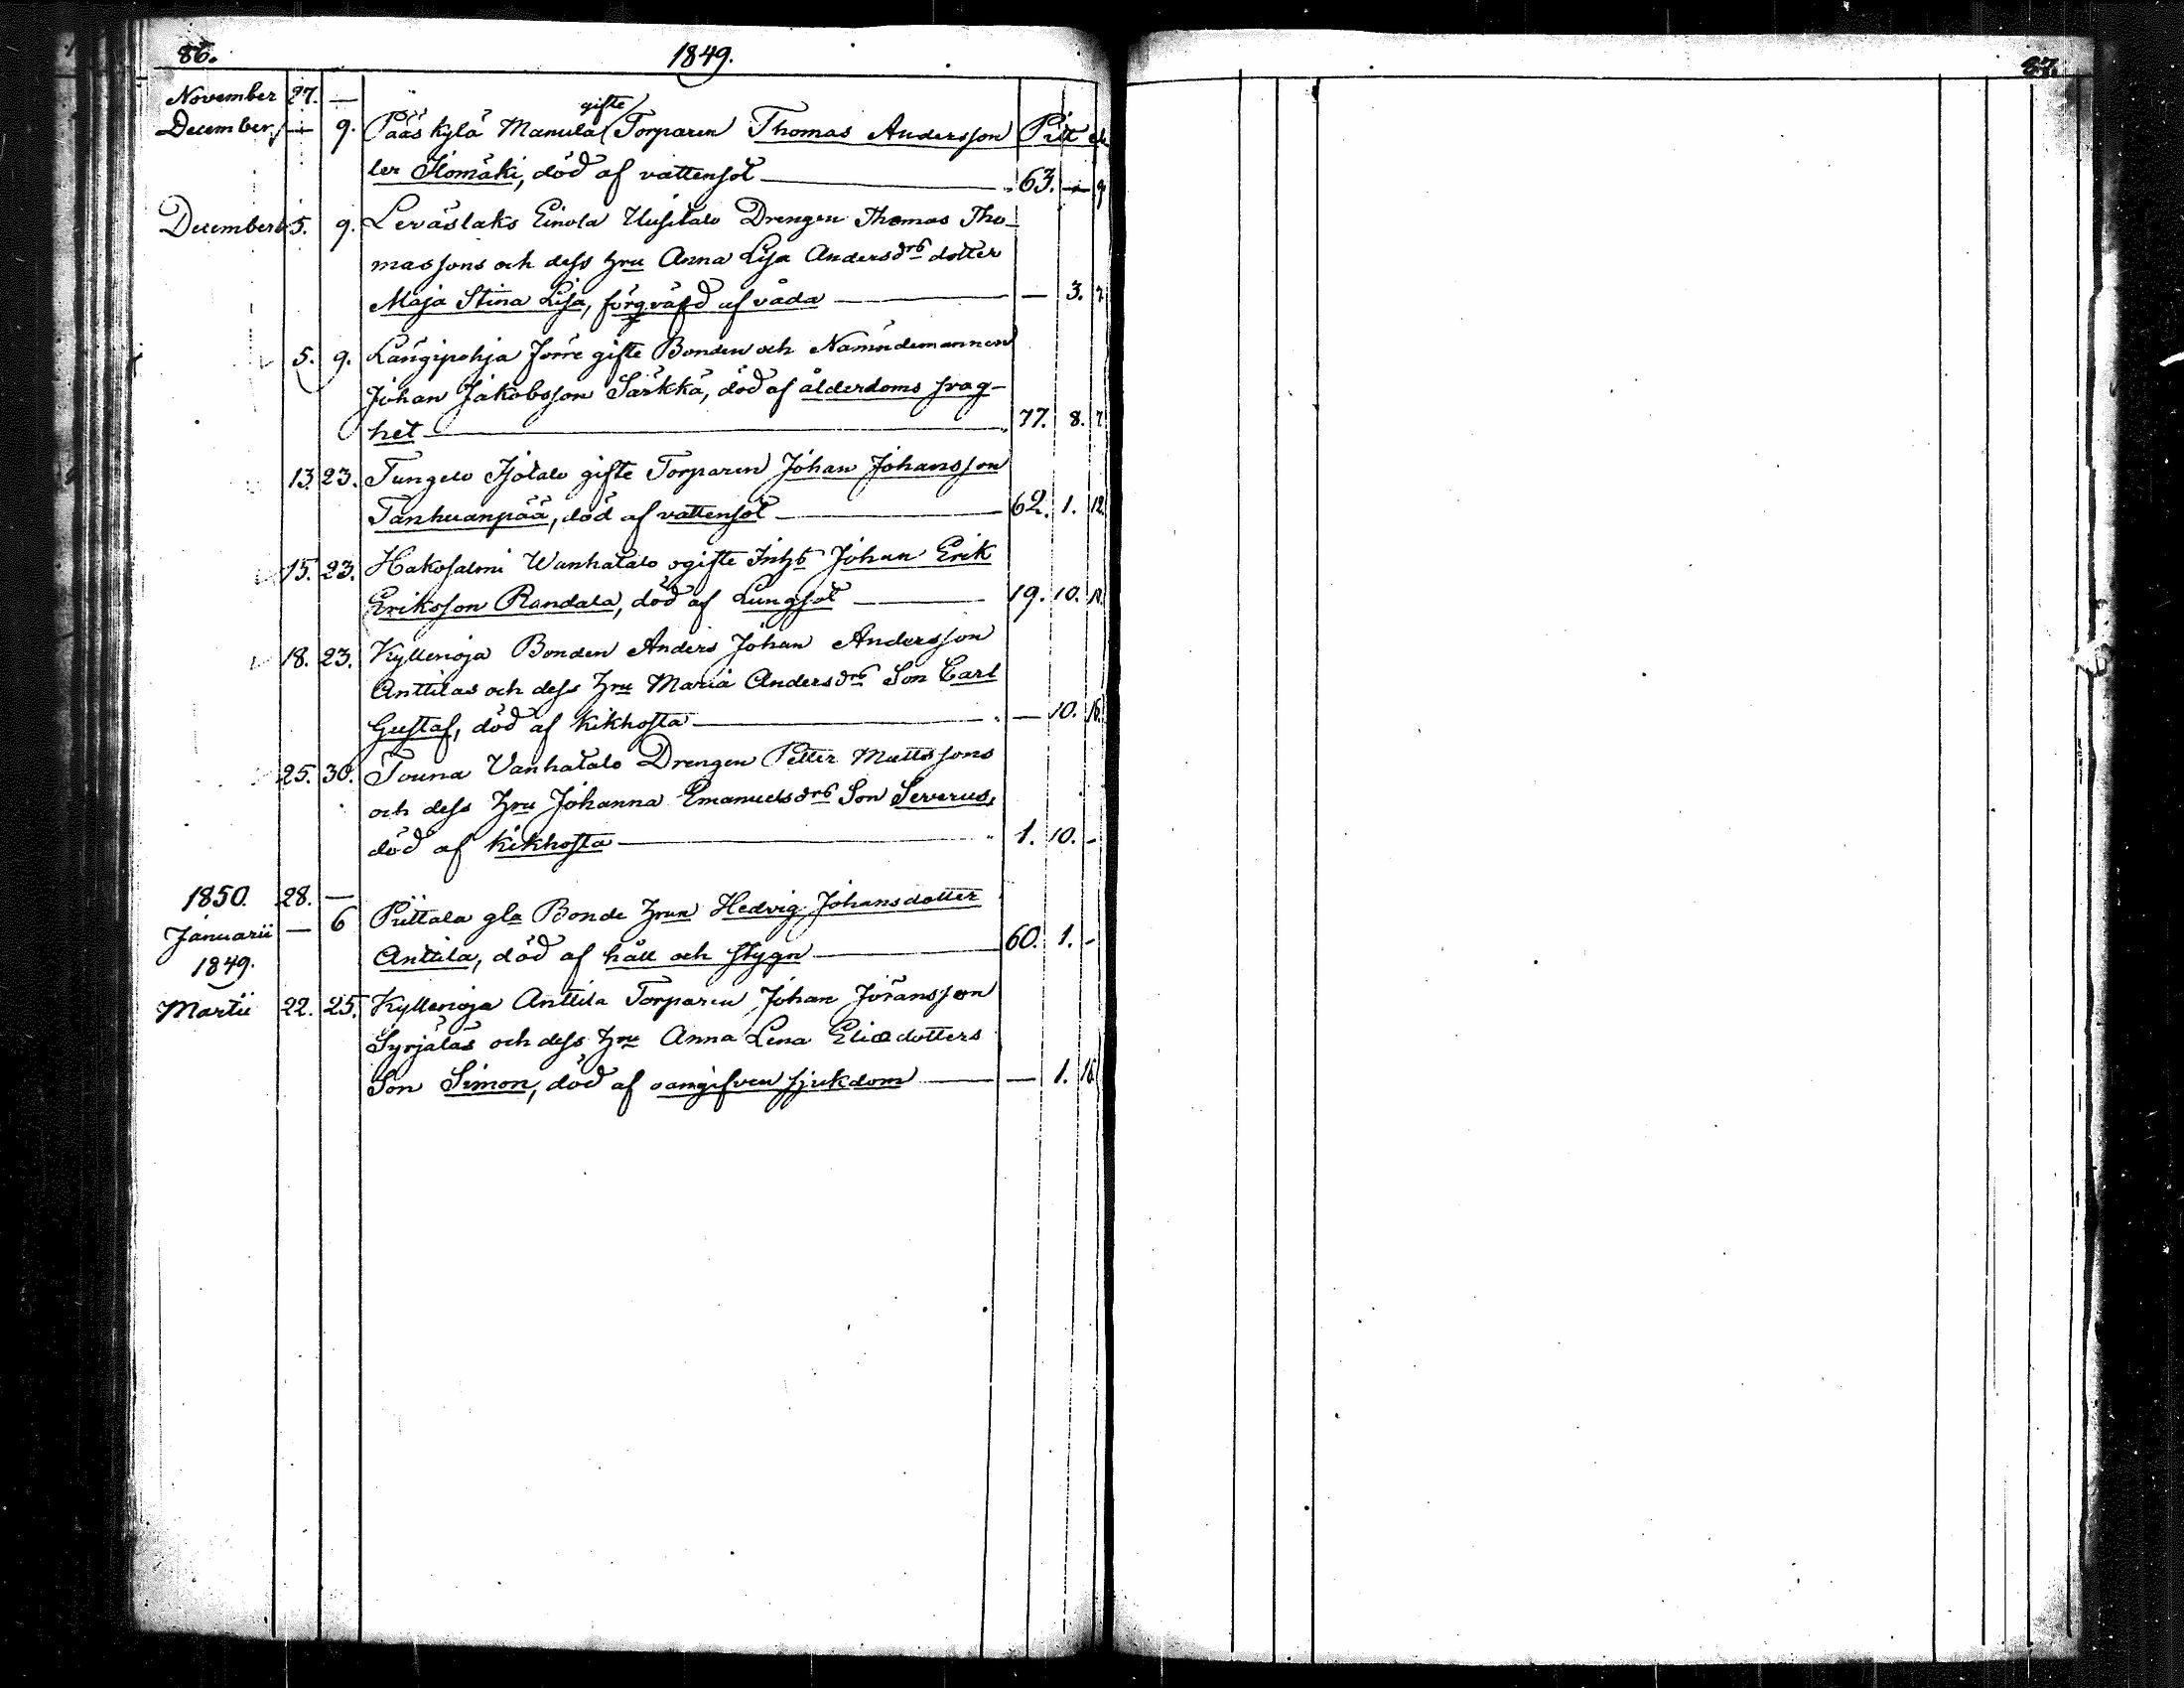 86. 1849. 87.
November 27. —
gifte
December — 9. Pääskylä Manula Torparen Thomas Andersson Pitt el-
ler Ilomäki, död af vattensot — 63. — 9
December 5. 9. Leväslaks Einola Uusitalo Drengen Thomas Tho-
massons och dess hru Anna Lisa Andersdrs dotter
Maja Stina Lisa, förqväfd af våda — — 3. 7
5. 9. Längipohja Jörre gifte Bonden och Nämndemannen
Johan Jakobsson Särkkä, död af ålderdoms svag-
het — 77. 8. 7
13. 23. Tungelo Isotalo gifte Torparen Johan Johansson
Tanhuanpää, död af vattensot — 62. 1. 12.
15. 23. Hakosalmi Wanhatalo ogifte Inhs Johan Erik
Eriksson Randala, död af Lungsot — 19. 10.
18. 23. Kyllenioja Bonden Anders Johan Andersson
Anttilas och dess hru Maria Andersdrs Son Carl
Gustaf, död af kikhosta — — 10. 16.
25. 30. Touna Vanhatalo Drengen Petter Mattssons
och dess hru Johanna Emanuelsdrs Son Severus,
död af kikhosta — 1. 10. -
1850. 28. —
Januarii — 6 Piittala gla Bonde hrun Hedvig Johansdotter
Anttila, död af håll och stygn — 60. 1. -
1849.
Martii 22. 25. Kyllenioja Anttila Torparen Johan Jöransson
Syrjäläs och dess hru Anna Lena Eliædotters
Son Simon, död af oangifven sjukdom — — 1. 16